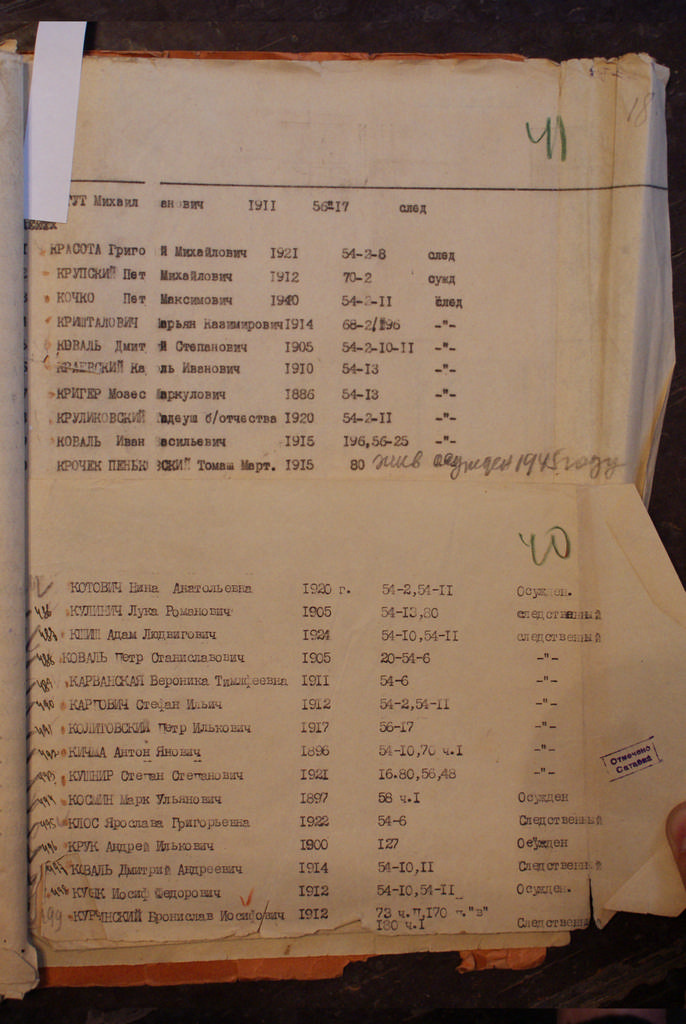 18
41
ГУТ Михаил анович 1911 56-17 след
КРАСОТА Григо й Михайлович 1921 54-2-8 след
КРУПСКИЙ Пет Михайлович 1912 70-2 сужд
КОЧКО Пет Максимович 54-2-II след
КРИШТАЛОВИЧ арьян Казимирович 1914 68-2/196 -"-
КОВАЛЬ Дмит й Степанович 1905 54-2-10-II -"-
КРАЕВСКИЙ Ка ль Иванович 1910 54-13 -"-
КРИГЕР Мозес аркулович 1886 54-13 -"-
КРУЛИКОВСКИЙ адеуш б/отчества 1920 54-2-II -"-
КОВАЛЬ Иван асильевич 1915 196,56-25 -"-
КРОЧЕК ПЕНЬК ВСКИЙ Томаш Март. 1915 80 жив осужден 1945 году
40
КОТОВИЧ Нина Анатольевна 1920 г. 54-2,54-II Осужден.
486 КУЛИНИЧ Лука Романович 1905 54-13,80 следственный
Адам Людвигович 1924 54-10,54-II следственный
488 КОВАЛЬ Петр Станиславович 1905 20-54-6 -"-
489 КАРВАНСКАЯ Вероника Тимофеевна 1911 54-6 -"-
490 КАРПОВИЧ Стефан Ильич 1912 54-2,54-II -"-
491 КОЛИТОВСКИЙ Петр Илькович 1917 56-17 -"-
492 КИЧМА Антон Янович 1896 54-10,70 ч.I -"-
493 КУШНИР Степан Степанович 1921 16.80,56,48 -"-
494 КОСМИН Марк Ульянович 1897 58 ч.I Осужден
495 КЛОС Ярослава Григорьевна 1922 54-6 Следственный
496 КРУК Андрей Илькович 1900 127 Осужден
497 КОВАЛЬ Дмитрий Андреевич 1914 54-10,II Следственный
498 Иосиф Федорович 1912 54-10,54-II Осужден.
499 КУРЧИНСКИЙ Бронислав Иосифович 1912 73 ч.П,170 п."в"
180 ч.I Следственный
Отмечено